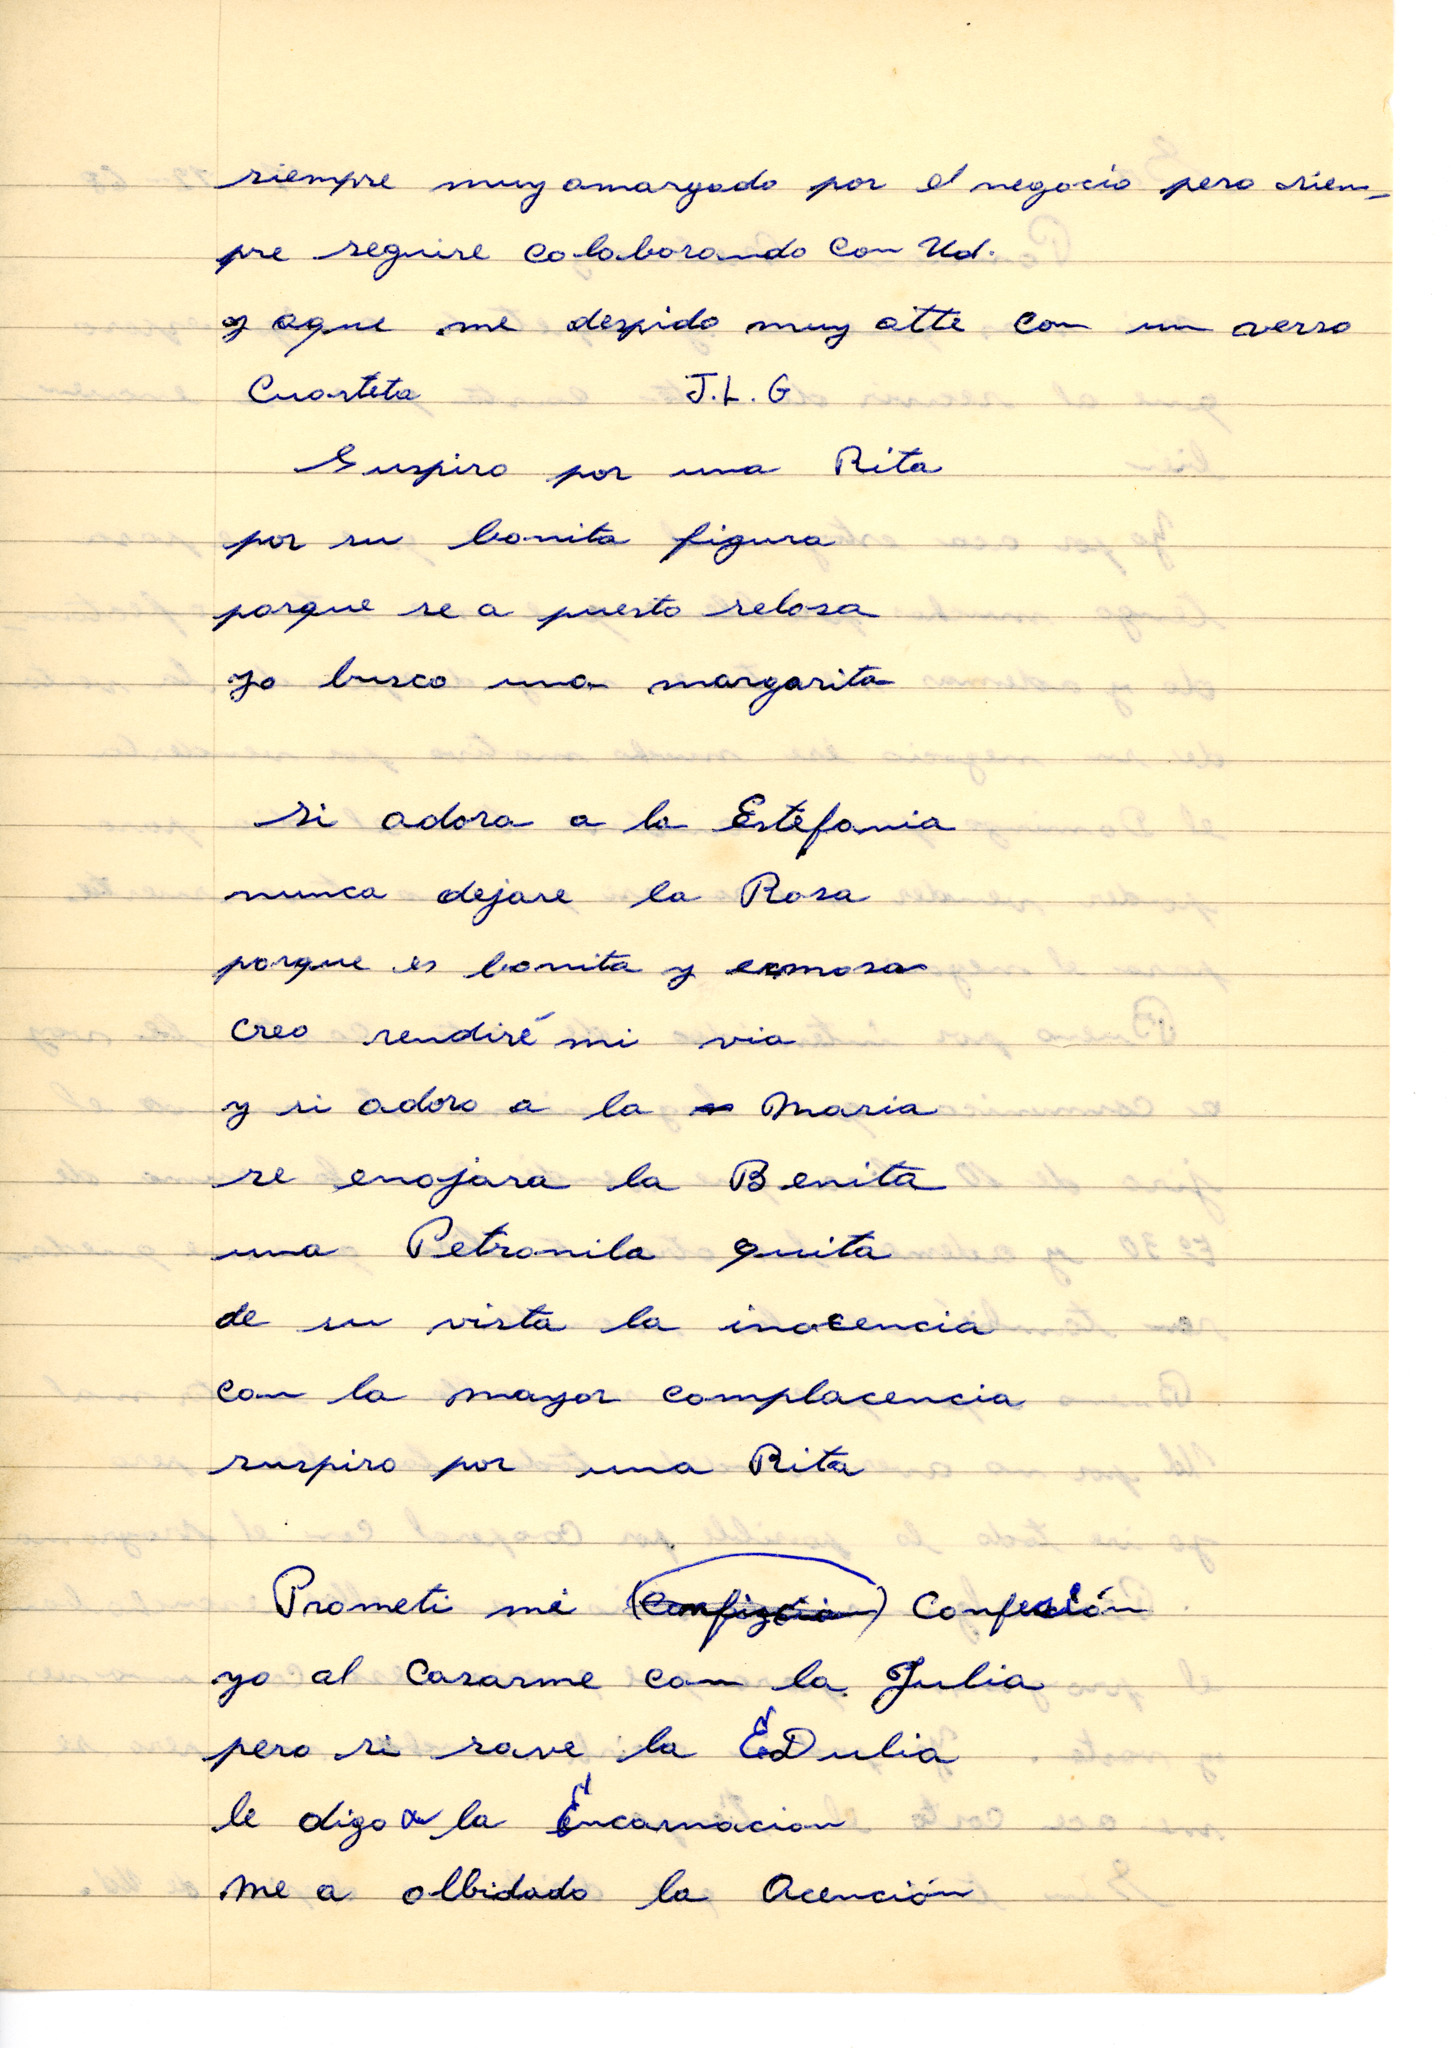 siempre muy amargado por el negocio pero siem-
pre seguire colaborando con Ud.
y aque me despido muy atte con un verso
Cuarteta J.L.G
Suspiro por una Rita
por su bonita figura
porque se a puesto selosa
yo busco una margarita
si adora a la Estefania
nunca dejare la Rosa
porque es bonita y ermosa
creo rendiré mi via
y si adoro a la Maria
se enojara la Benita
una Petronila quita
de su vista la inocencia
con la mayor complacencia
suspiro por una Rita
Prometi mi Confesión
yo al casarme con la Julia
pero si save la EDulia
le digo a la Encarnacion
me a olbidado la Acención